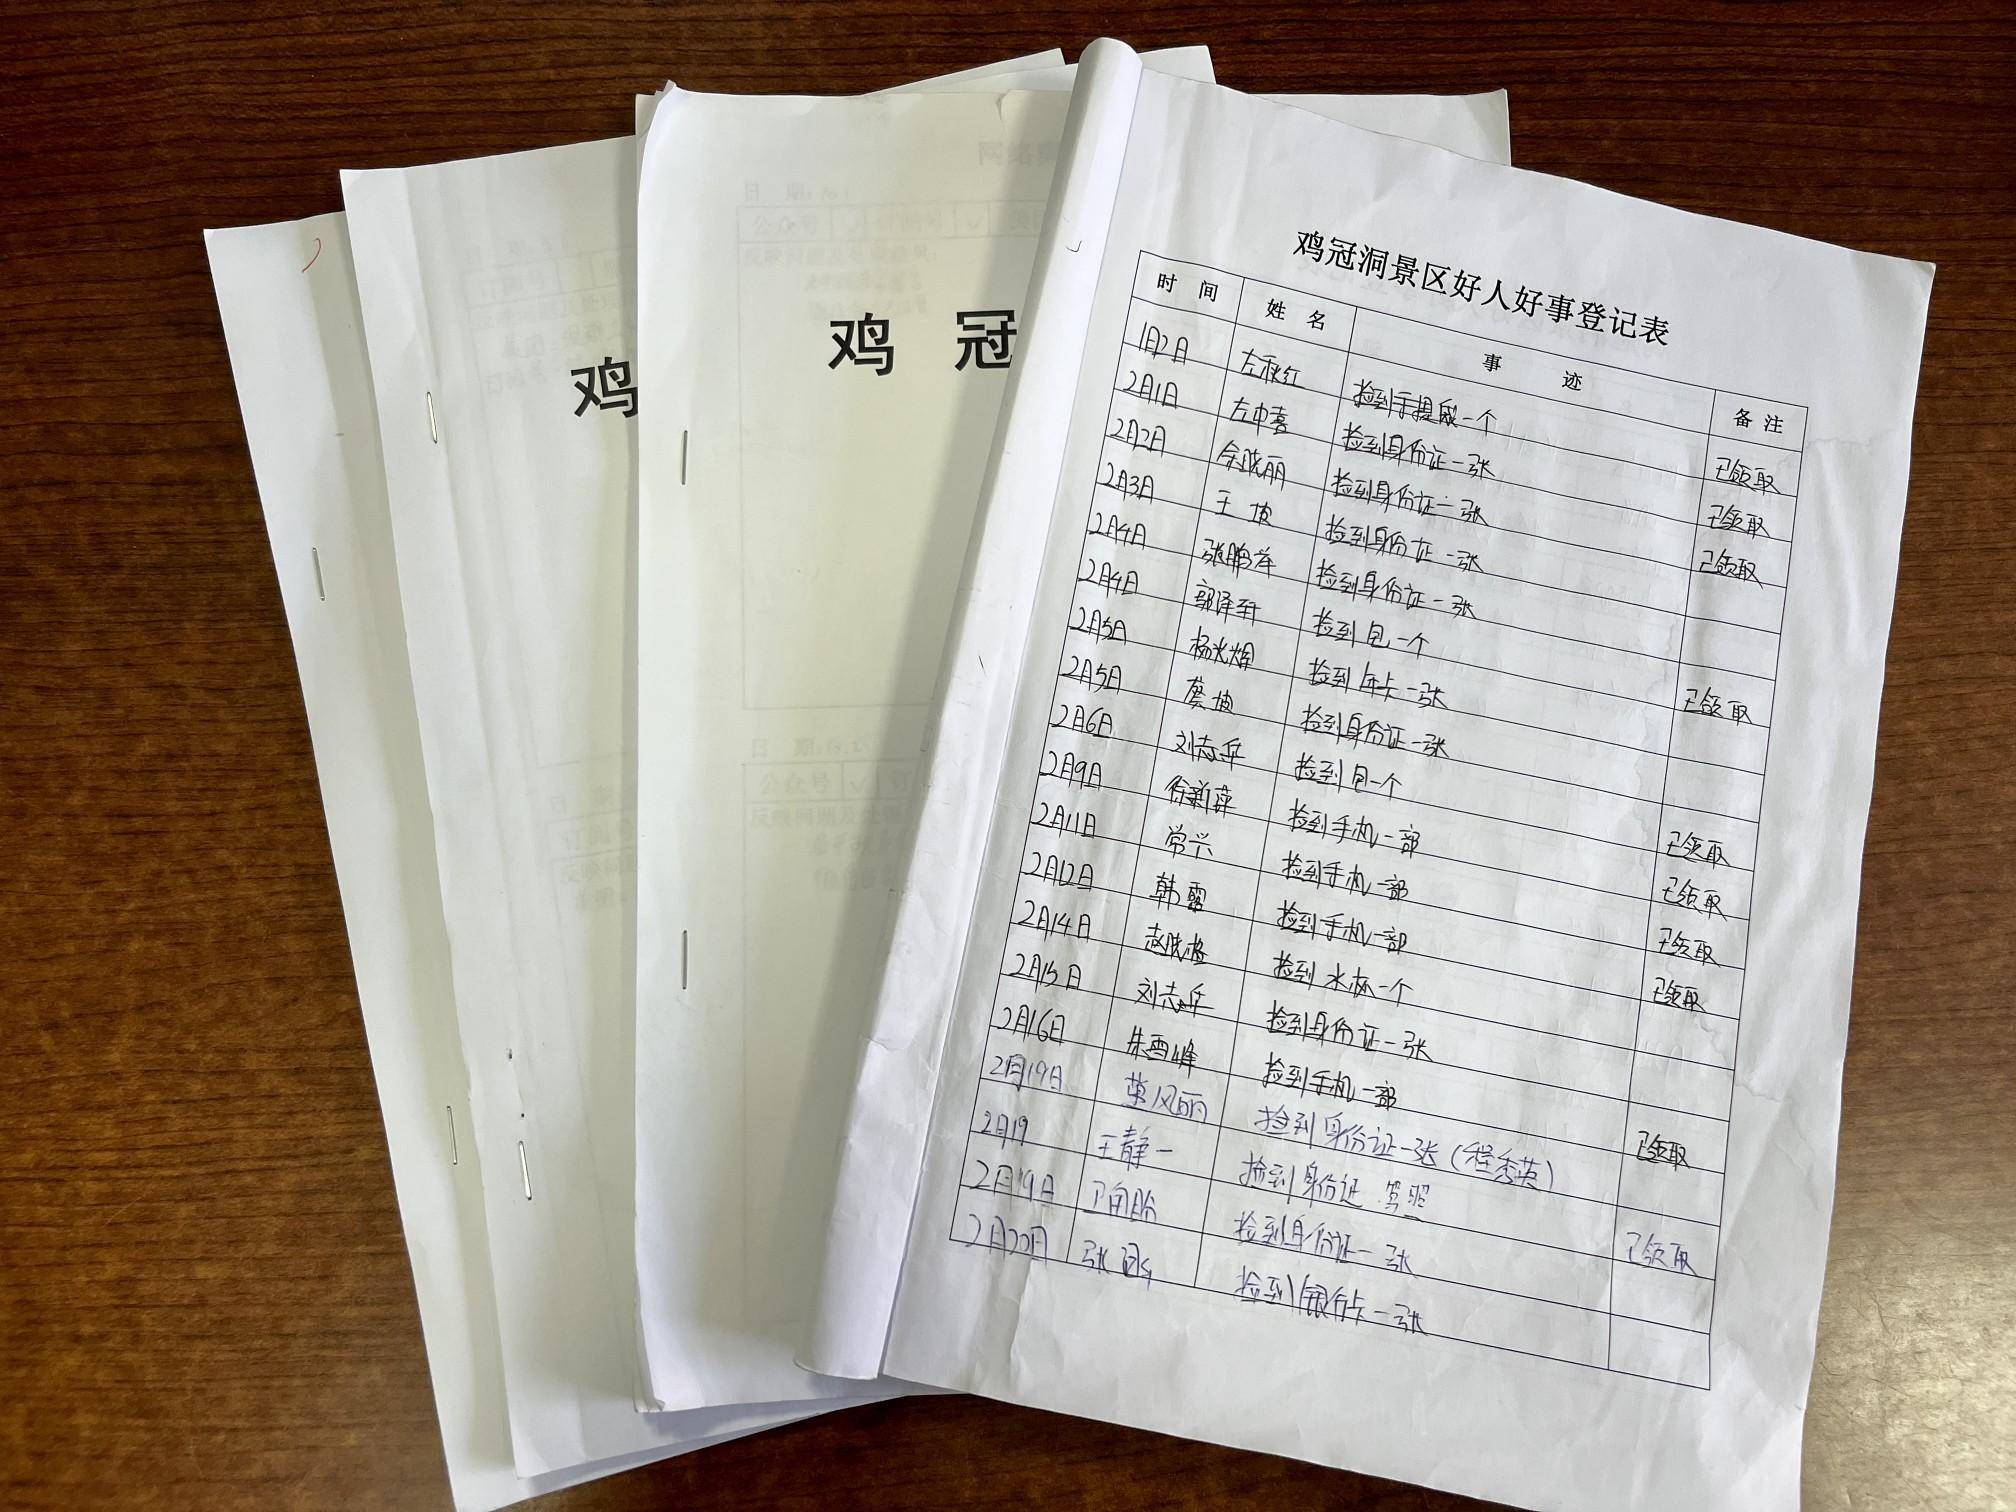 鸡
鸡 冠
鸡冠洞景区好人好事登记表
时 间 姓 名 事 迹 备 注
1月2日 左秋红 捡到手提包一个 已领取
2月1日 左中喜 捡到身份证一张 已领取
2月2日 余晓丽 捡到身份证一张 已领取
2月3日 王 坡 捡到身份证一张
2月4日 张鹏 捡到身份证一张
2月4日 郭泽轩 捡到包一个 已领取
2月5日 杨光辉 捡到年卡一张
2月5日 坡 捡到身份证一张
2月6日 刘志兵 捡到包一个 已领取
2月9日 徐新萍 捡到手机一部 已领取
2月11日 常兴 捡到手机一部 已领取
2月12日 韩露 捡到手机一部 已领取
2月14日 赵晓 捡到水杯一个
2月15日 刘志兵 捡到身份证一张
2月16日 朱酉峰 捡到手机一部 已领取
2月19日 风丽 捡到身份证一张（程秀英）
2月19 王静一 捡到身份证 驾照 已领取
2月19日 捡到身份证一张
2月20日 张 捡到银行卡一张